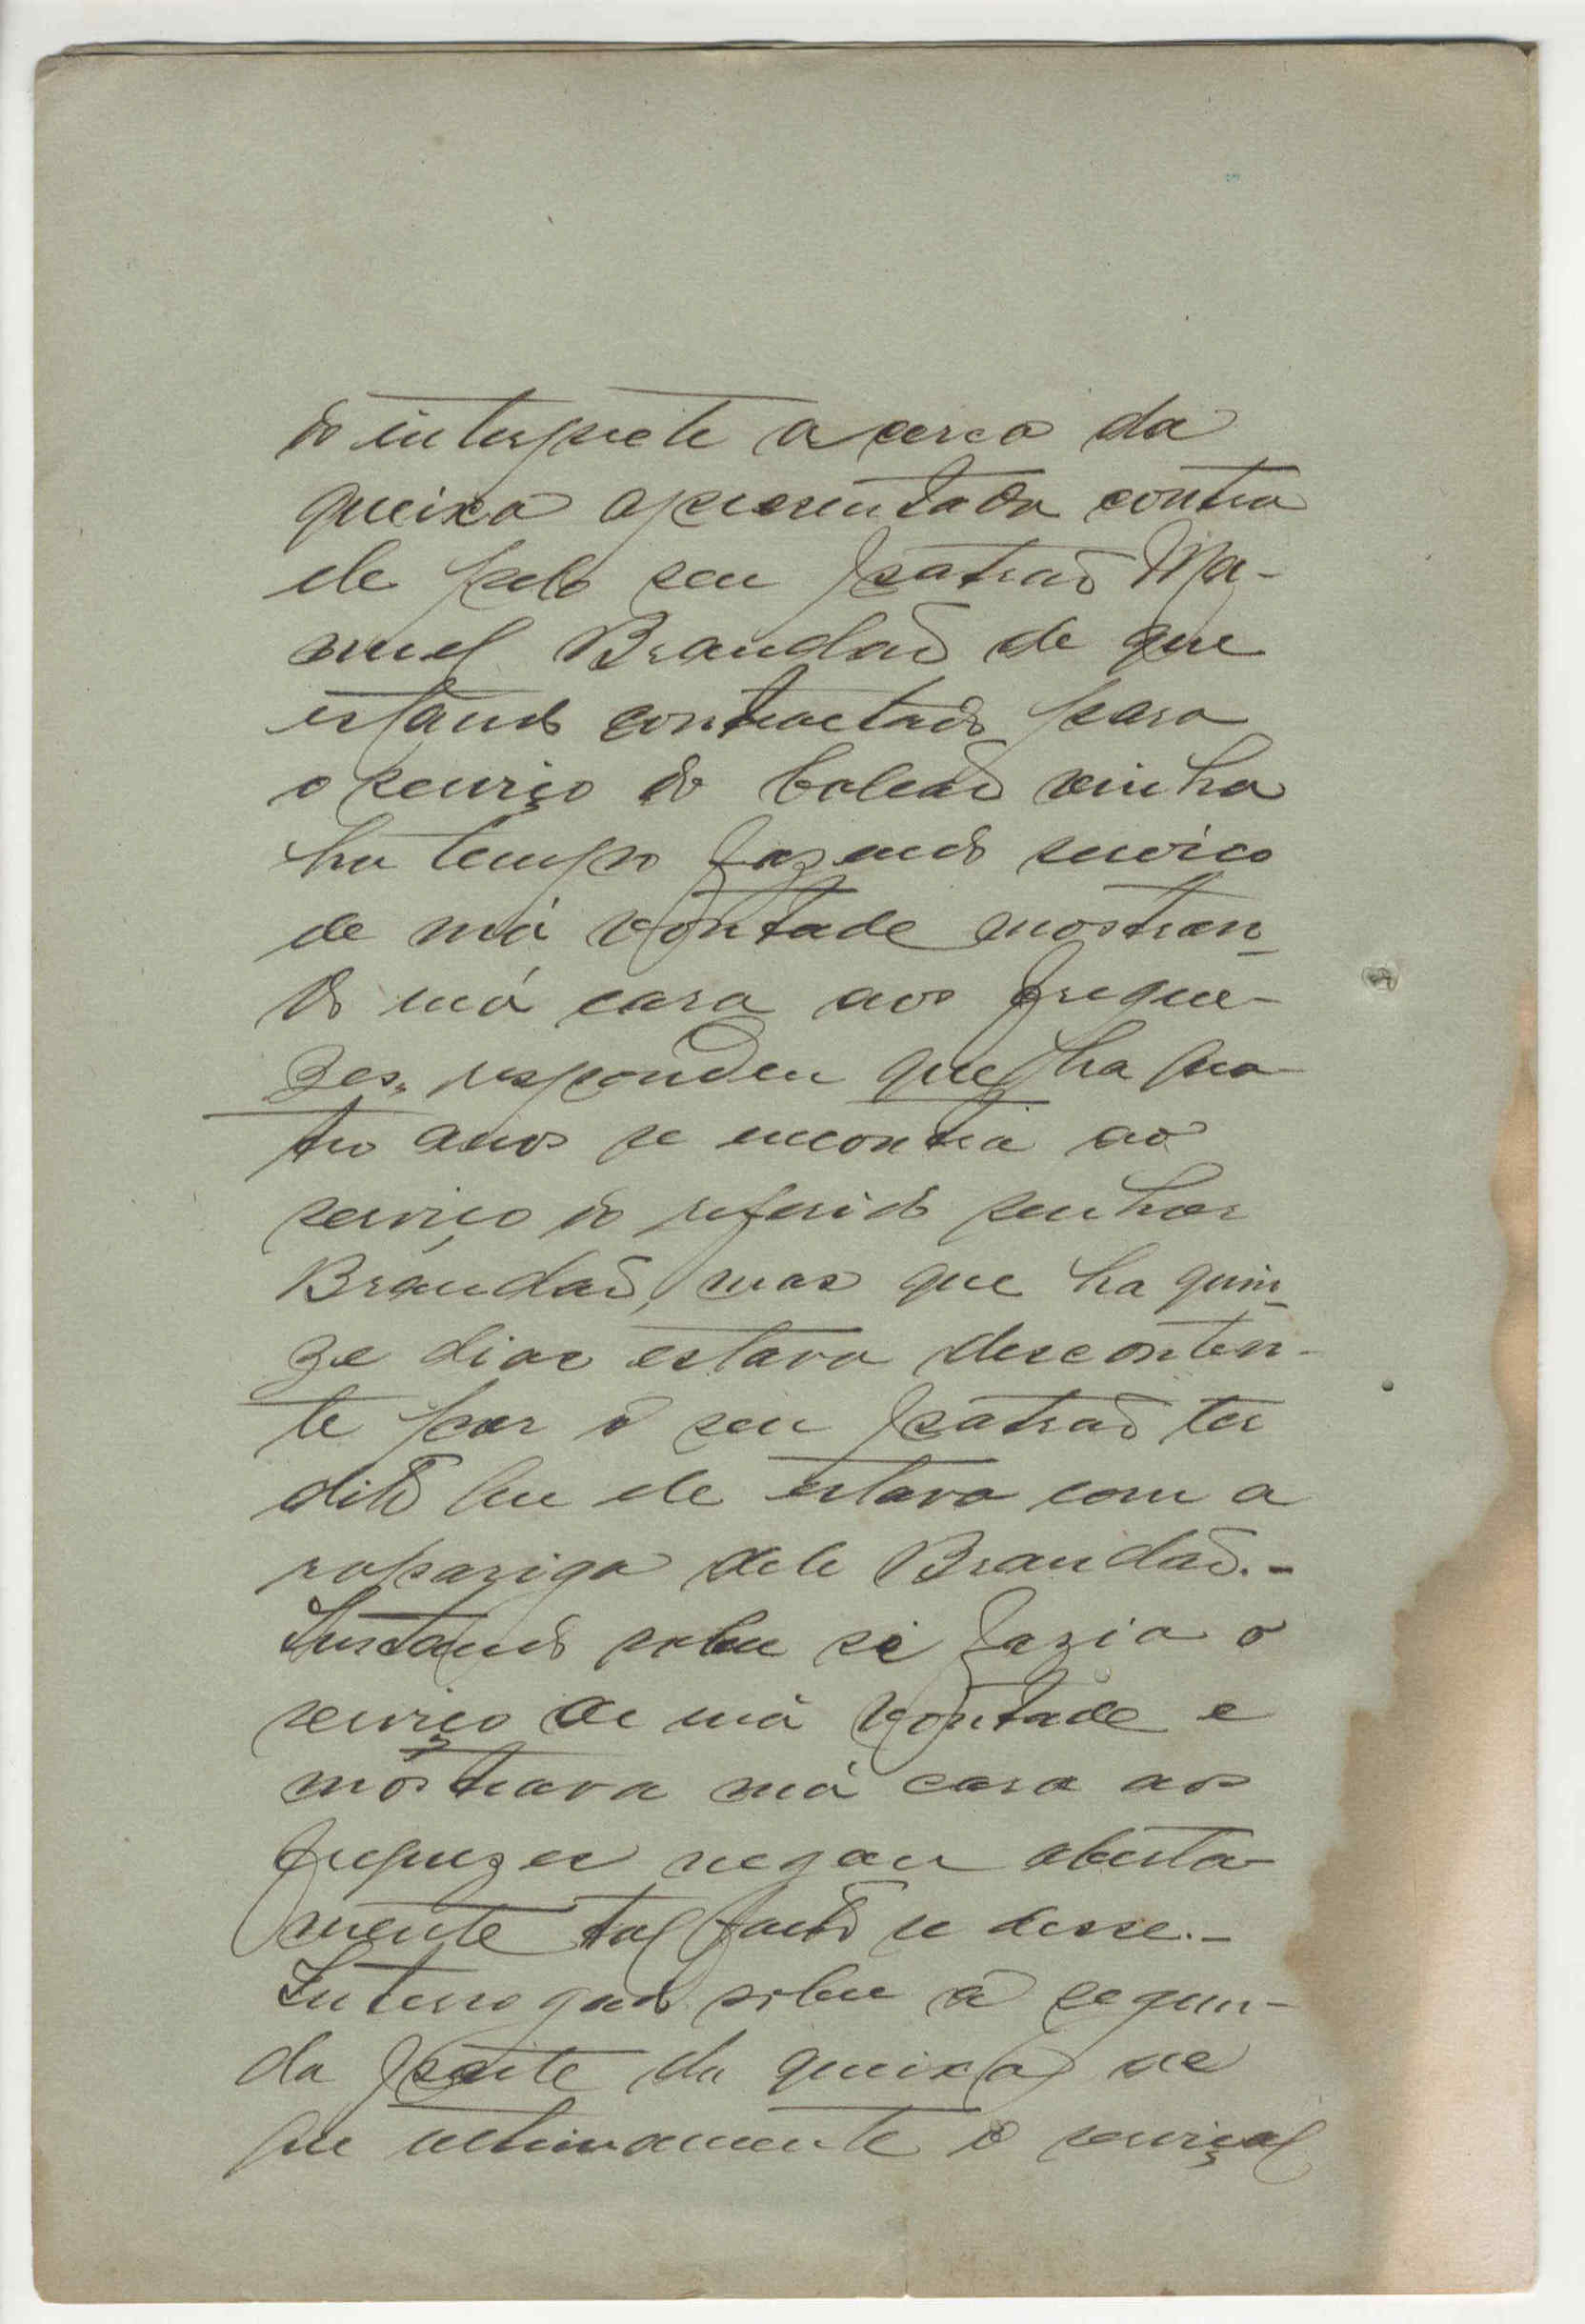 do interprete a cerca da
queixa apresentada contra
ele pelo seu patraõ Ma-
nuel Brandaõ de que
estando contractado para
o serviço do balcaõ vinha
ha tempo fazendo serviço
de má vontade mostran-
do má cara aos fregue-
zes, respondeu que ha qua-
tro anos se encontra ao
serviço do referido senhor
Brandaõ, mas que ha quin-
ze dias estava desconten-
te por o seu patraõ ter
dito que ele estava com a
rapariga dele Brandaõ.-
Instando sobre si fazia o
serviço de má vontade e
mostrava má cara aos
freguezes negou aberta-
mente tal facto se desse.-
Interrogado sobre a segun-
da parte da queixa de
que ultimamente o serviçal